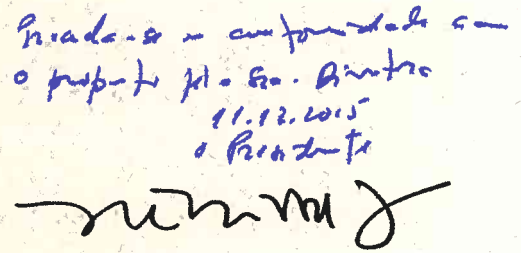 Proceda-se em conformidade com
o proposto pela Sra. Diretora
11.12.2015
o Presidente